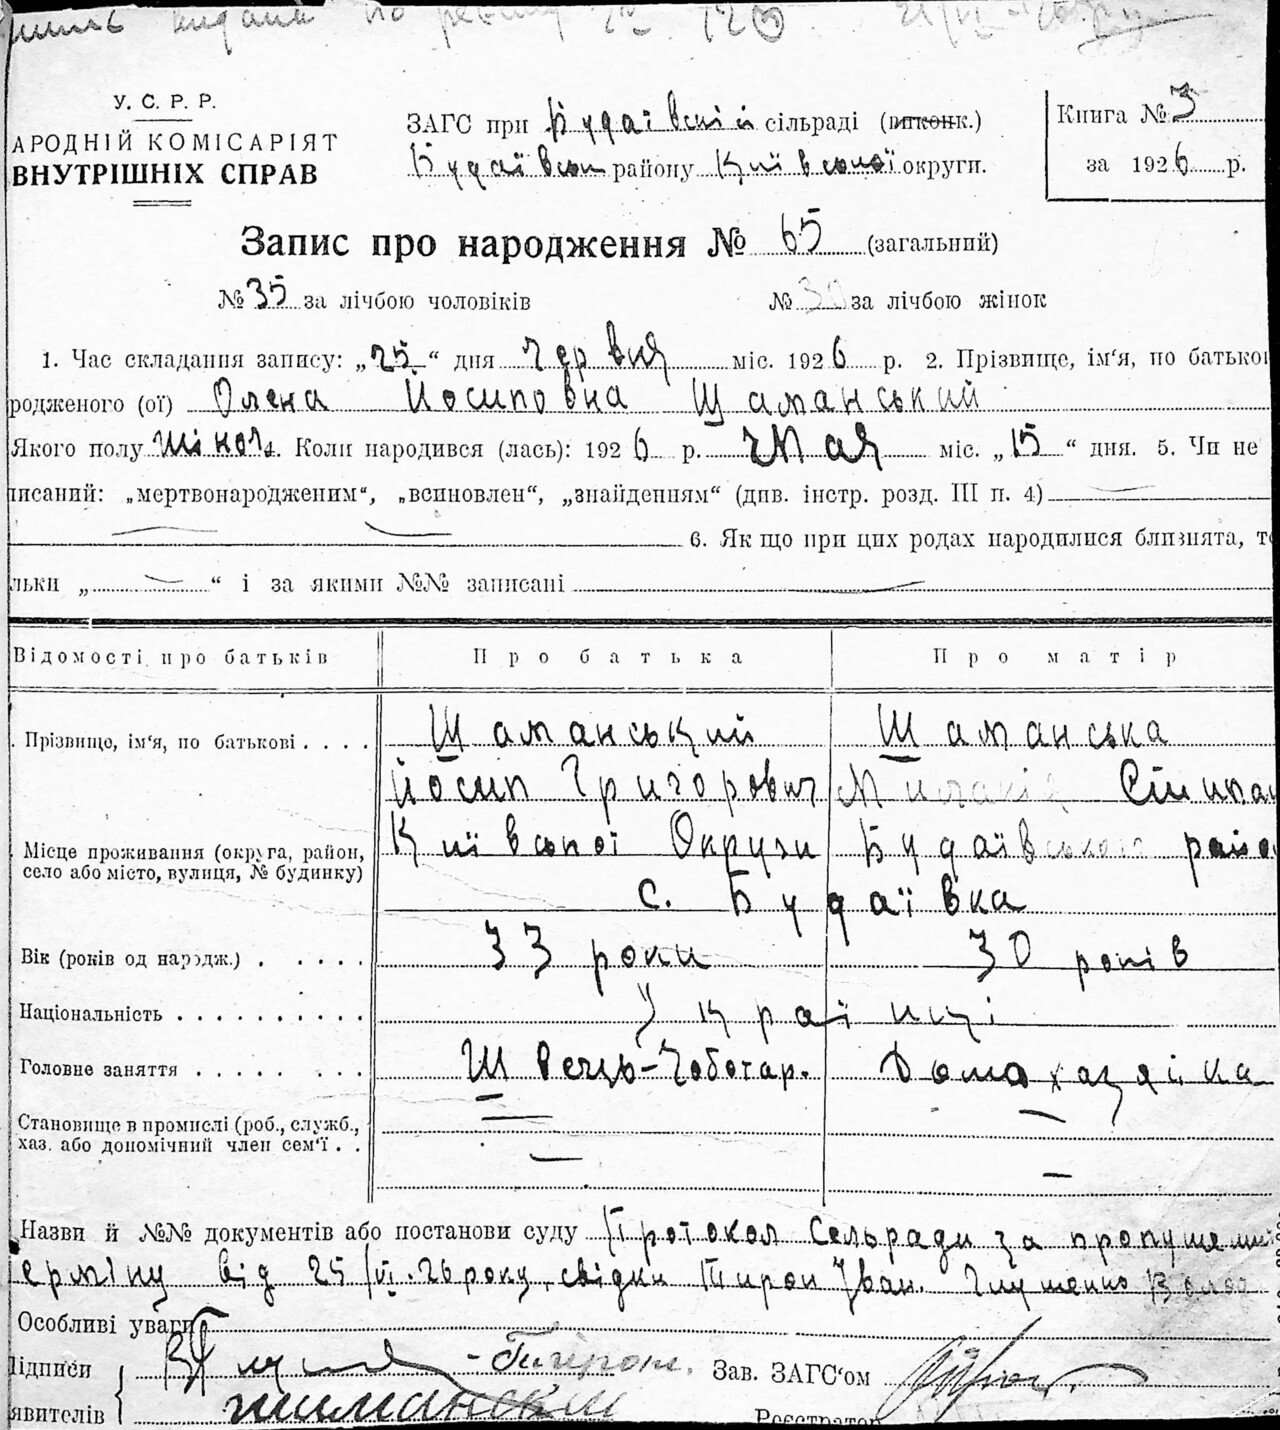 У. С. Р. Р.
АРОДНІЙ КОМІСАРІЯТ
ВНУТРІШНІХ СПРАВ
ЗАГС при Будаївській сільраді (виконк.)
Будаївськ району Київської округи.
Книга № 3
за 1926 р.
Запис про народження № 65 (загальний)
№ 35 за лічбою чоловіків № 30 за лічбою жінок
1. Час складання запису: „25“ дня Червня міс. 1926 р. 2. Прізвище, ім‘я, по батькові
родженого (ої) Олена Йосиповна Шаманський
Якого полу жіноч. 4. Коли народився (лась): 1926 р. Мая міс. „15“ дня. 5. Чи не
писаний: „мертвонародженим“, „всиновлен“, „знайденням“ (див. інстр. розд. III п. 4)
6. Як що при цих родах народилися близнята, то
льки „ “ і за якими №№ записані
Відомості про батьків Про батька Про матір
Прізвище, ім‘я, по батькові . . . . Шаманський Шаманська
Йосип Григорович
Місце проживання (округа, район, село або місто, вулиця, № будинку) Київської Округи Будаївського райо
с. Будаївка
Вік (років од народж.) . . . . . 33 роки 30 років
Національність . . . . . . . . . . Українці
Головне заняття . . . . . . . . Швець-Чоботар. Домахазяйка
Становище в промислі (роб., служб., хаз. або допомічний член сем‘ї . .
Назви й №№ документів або постанови суду Протокол Сельради за пропущений
ерміну від 25/VI.26 року, свідки Тирон Іван. Глущенко Волод
Особливі уваги
Підписи
явителів
Шиманский
Зав. ЗАГС‘ом
Реєстратор